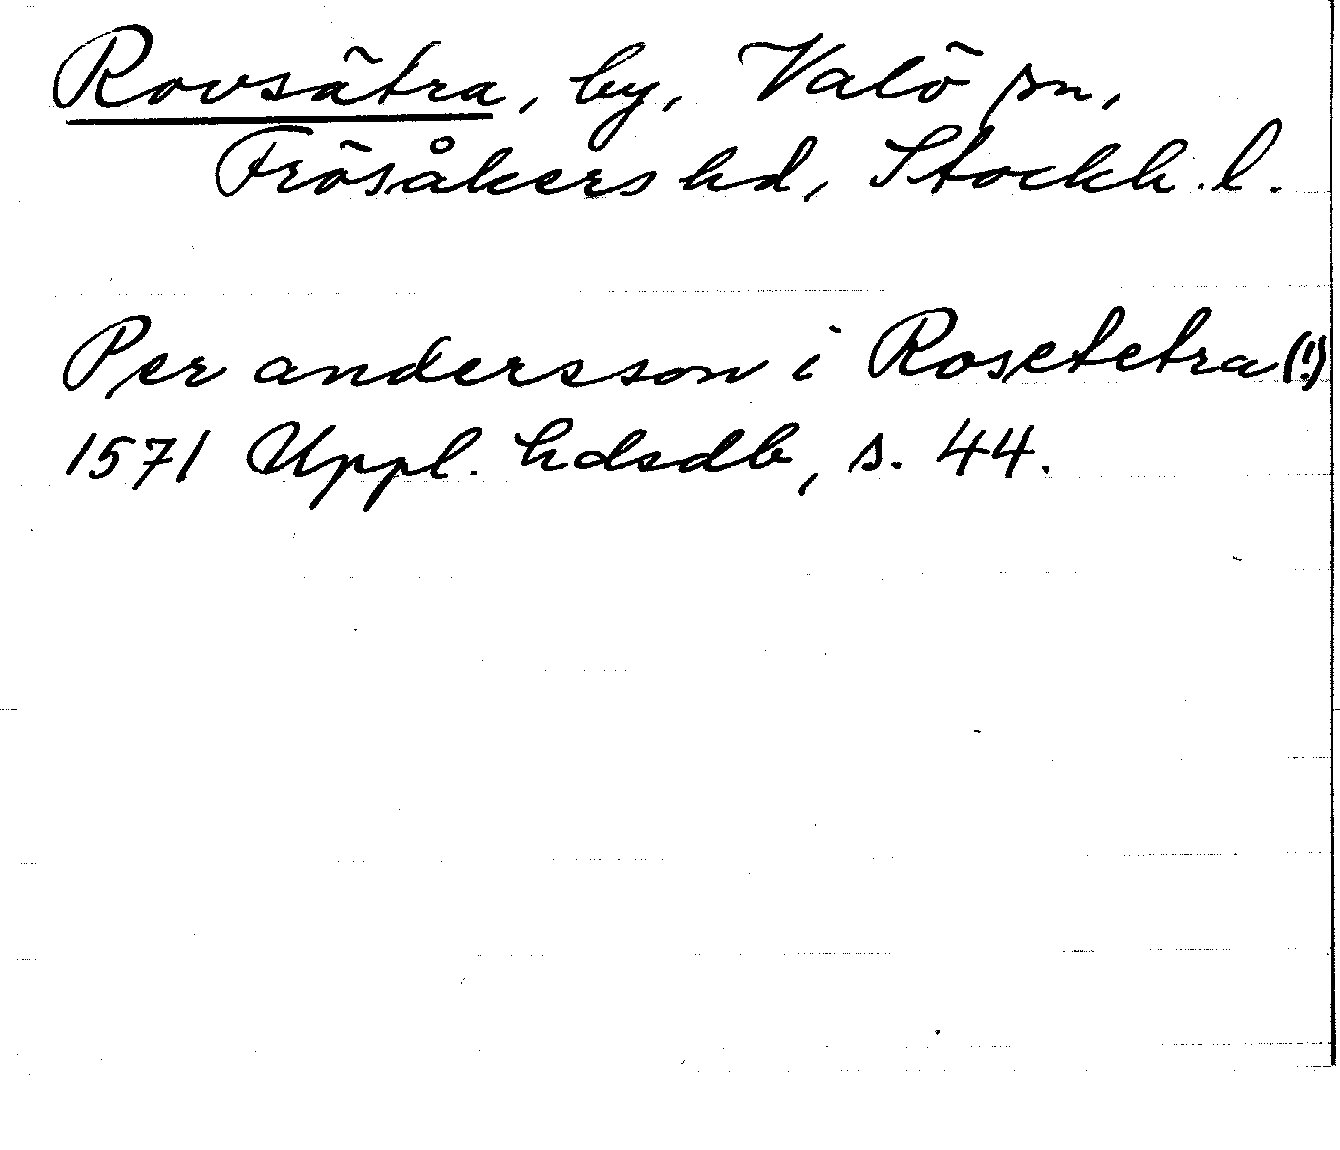 Rovsätra, by, Valö sn,
Frösåkers hd, Stockh. l.
Per andersson i Rosetetra (!)
1571 Uppl. hdsdb, s. 44.